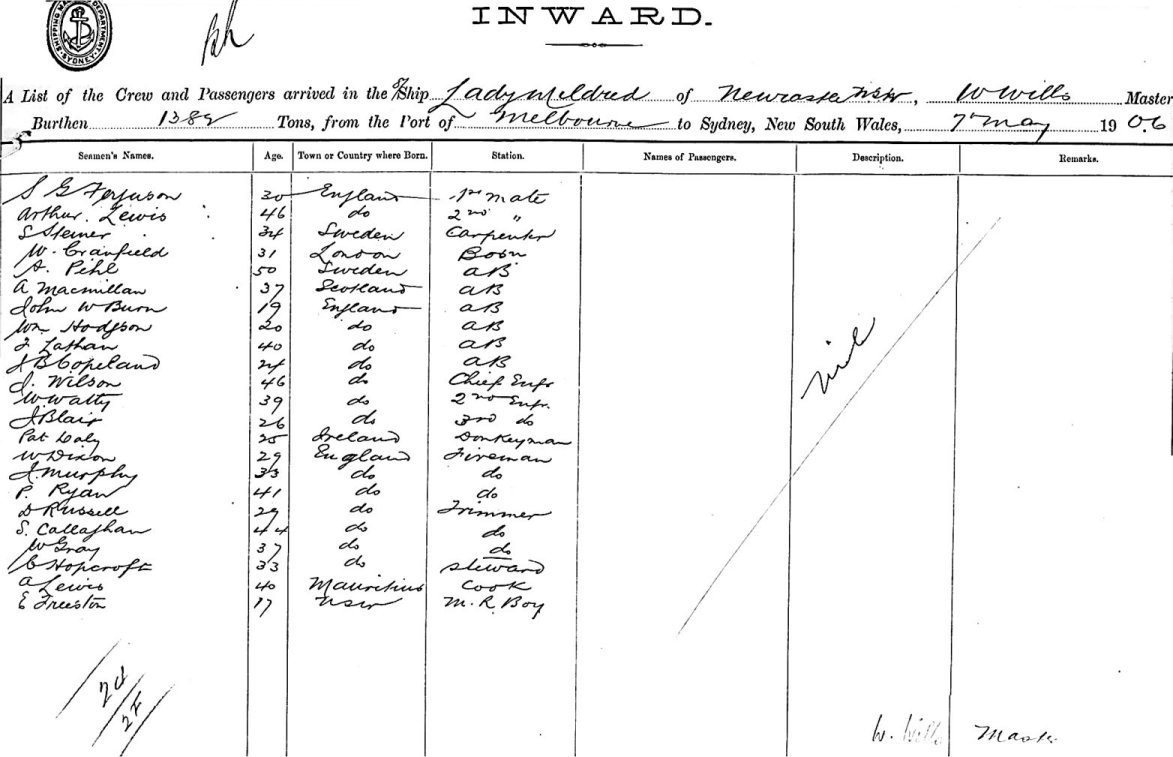 SHIPPING MASTER'S DEPARTMENT SYDNEY
INWARD.
A List of the Crew and Passengers arrived in the S/Ship Lady Mildred of Newcastle NSW, W Wills Master
Burthen 1389 Tons, from the Port of Melbourne to Sydney, New South Wales, 7th May 1906.
Seamen's Names. Age. Town or Country where Born. Station. Names of Passengers. Description. Remarks.
S G Ferguson 30 England 1st mate
Arthur Lewis 46 do 2nd "
S Steiner 34 Sweden Carpenter
W. Cranfield 31 London Bosn
A. Pihl 50 Sweden AB
A Macmillan 37 Scotland AB
John W Burn 19 England AB
Wm Hodgson 20 do AB
F Lathan 40 do AB
J B Copeland 24 do AB
J. Wilson 46 do Chief Engr
W. Watty 39 do 2nd Engr.
J Blair 26 do 3rd do
Pat Daly 25 Ireland Donkeyman
W Dixon 29 England Fireman
J. Murphy 33 do do
P. Ryan 41 do do
D Russell 29 do Trimmer
S. Callaghan 44 do do
W Gray 37 do do
C Hopcroft 33 do Steward
A Lewis 40 Mauritius Cook
E Freeston 17 NSW M. R. Boy
nil
24
2F
W. Wills Master